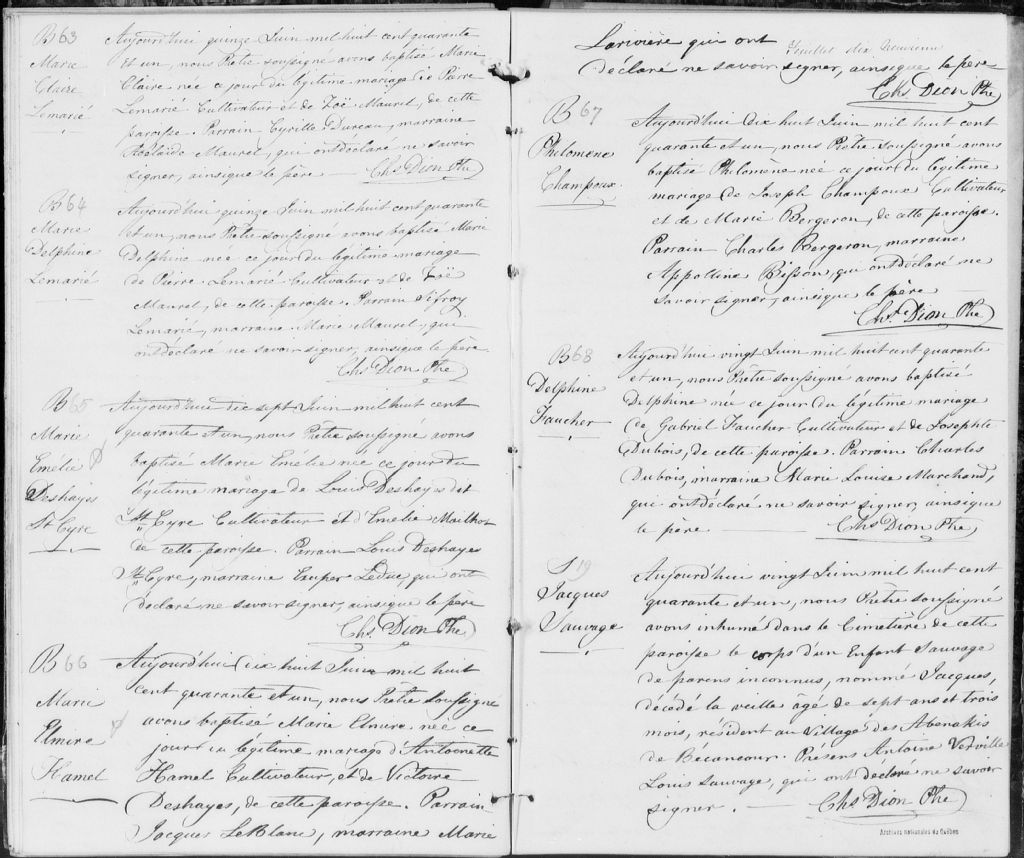 B63
Marie
Claire
Lemarié
Aujourd'hui quinze Juin mil huit cent quarante
et un, nous Prêtre soussigné avons baptisé Marie
Claire née ce jour du légitime mariage de Pierre
Lemarié Cultivateur et de Zoë Maurel, de cette
paroisse. Parrain Cyrille Dureau, marraine
Adélaïde Maurel, qui ont déclaré ne savoir
signer, ainsi que le père
Chs Dion Ptre
B64
Marie
Delphine
Lemarié
Aujourd'hui quinze Juin mil huit cent quarante
et un, nous Prêtre soussigné avons baptisé Marie
Delphine née ce jour du légitime mariage
de Pierre Lemarié Cultivateur et de Zoë
Maurel, de cette paroisse. Parrain Sifroy
Lemarié, marraine Marie Maurel, qui
ont déclaré ne savoir signer, ainsi que le père.
Chs Dion Ptre
B65
Marie
Emélie
Deshayes
St Cyre
Aujourd'hui dix sept Juin mil huit cent
quarante et un, nous Prêtre soussigné avons
baptisé Marie Emélie née ce jour du
légitime mariage de Louis Deshayes dit
St Cyre Cultivateur et d'Emelie Mailhot
de cette paroisse. Parrain Louis Deshayes
St Cyre, marraine Exuper Leduc qui ont
déclaré ne savoir signer, ainsi que le père
Chs Dion Ptre
B66
Marie
Elmire
Hamel
Aujourd'hui dix huit Juin mil huit
cent quarante et un, nous Prêtre soussigné
avons baptisé Marie Elmire née ce
jour du légitime mariage d'Antoine
Hamel Cultivateur, et de Victoire
Deshayes, de cette paroisse. Parrain
Jacques LeBlanc, marraine Marie
feuillet dix neuvième
Larivière qui ont
déclaré ne savoir signer, ainsi que le père
Chs Dion Ptre
B67
Philomène
Champoux
Aujourd'hui dix huit Juin mil huit cent
quarante et un, nous Prêtre soussigné avons
baptisé Philomène née ce jour du légitime
mariage de Joseph Champoux Cultivateur
et de Marie Bergeron, de cette paroisse.
Parrain Charles Bergeron, marraine
Appolline Bisson, qui ont déclaré ne
savoir signer, ainsi que le père
Chs Dion Ptre
B68
Delphine
Faucher
Aujourd'hui vingt Juin mil huit cent quarante
et un, nous Prêtre soussigné avons baptisé
Delphine née ce jour du légitime mariage
de Gabriel Faucher Cultivateur et de Josephte
Dubois, de cette paroisse. Parrain Charles
Dubois, marraine Marie Louise Marchand,
qui ont déclaré ne savoir signer, ainsi que
le père
Chs Dion Ptre
S19
Jacques
Sauvage
Aujourd'hui vingt Juin mil huit cent
quarante et un, nous Prêtre soussigné
avons inhumé dans le Cimetière de cette
paroisse le corps d'un Enfant Sauvage
de parens inconnus, nommé Jacques,
décédé la veille âgé de sept ans et trois
mois, résident au Village des Abenakis
de Bécancour. Présens Antoine Verville
Louis Sauvage, qui ont déclaré ne savoir
signer.
Chs Dion Ptre
Archives nationales du Québec